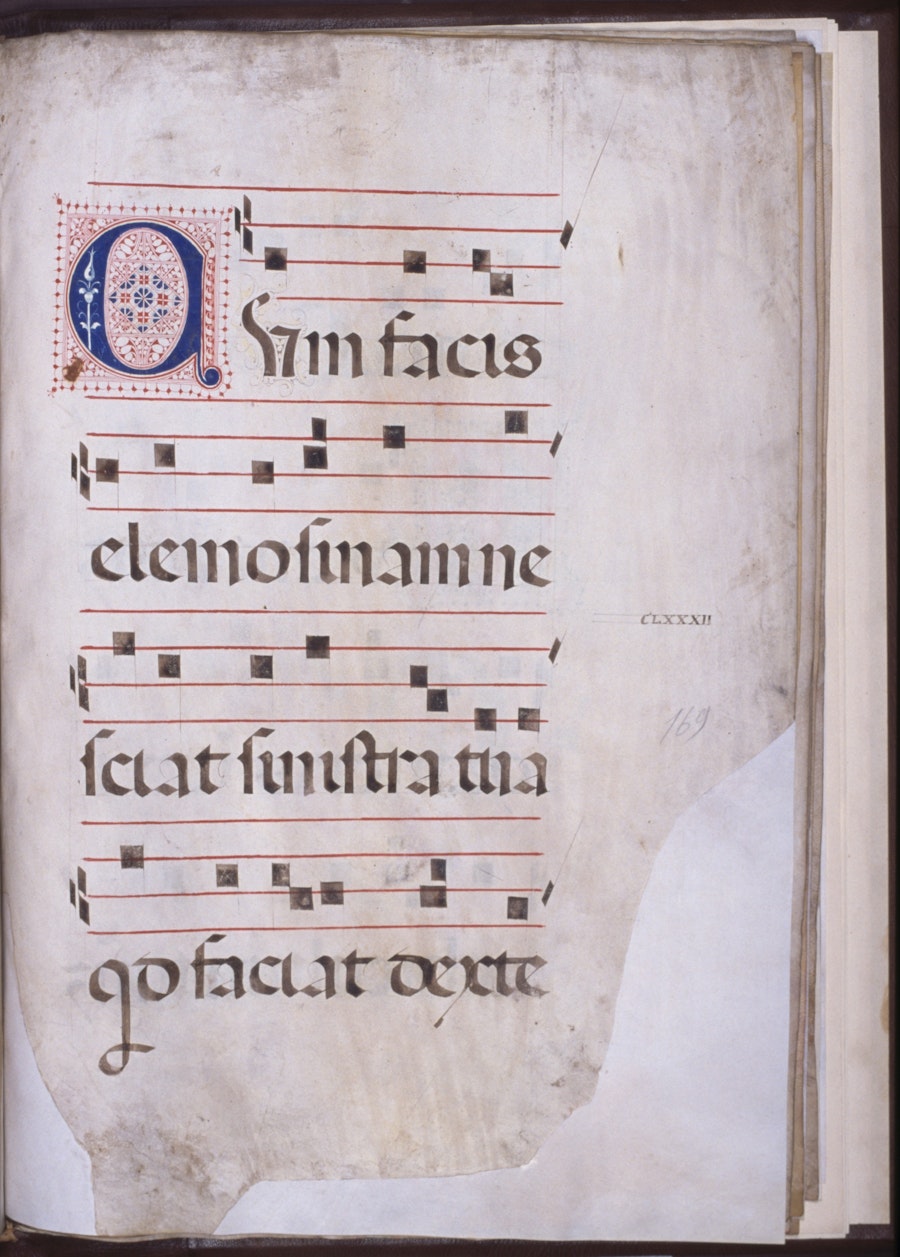 QVm facis
elemosinam ne
CLXXXII
sciat sinistra tua
169
qd faciat dexte